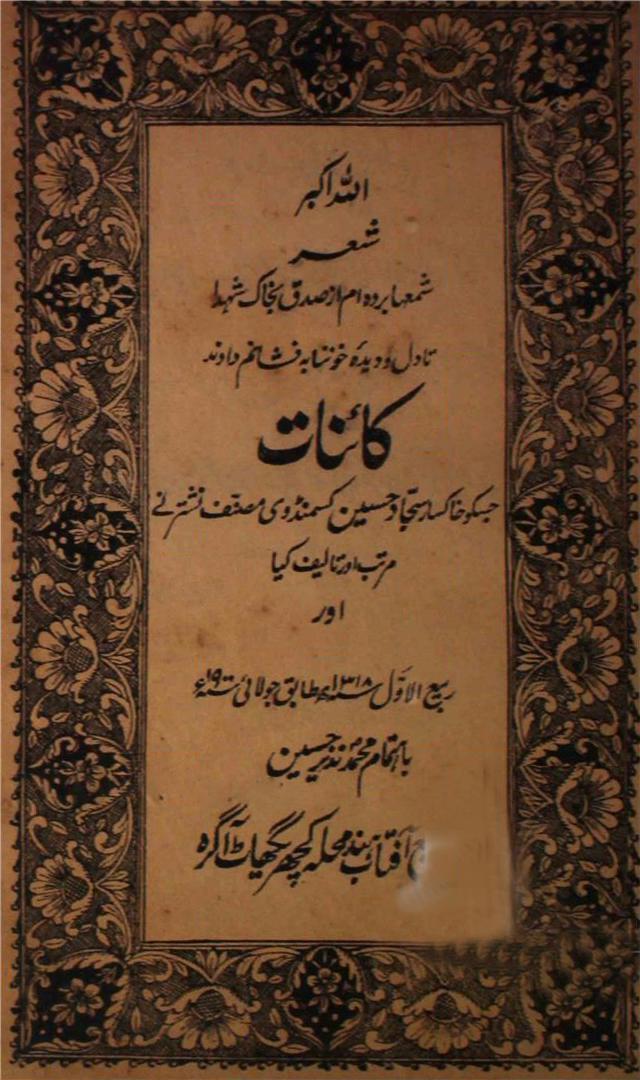 اللہ اکبر
شعر
شمعہا بردہ ام از صدق بخاک شہدا
تا دل و دیدۂ خونابہ فشانم دادند
کائنات
جسکو خاکسار سجاد حسین کسمنڈوی مصنف نشتر نے
مرتب اور تالیف کیا
اور
ربیع الاوّل ۱۳۱۸ھ مطابق جولائی ۱۹۰۰ء
باہتمام محمد نذیر حسین
آفتاب ہند محلہ کچھریگھاٹ آگرہ